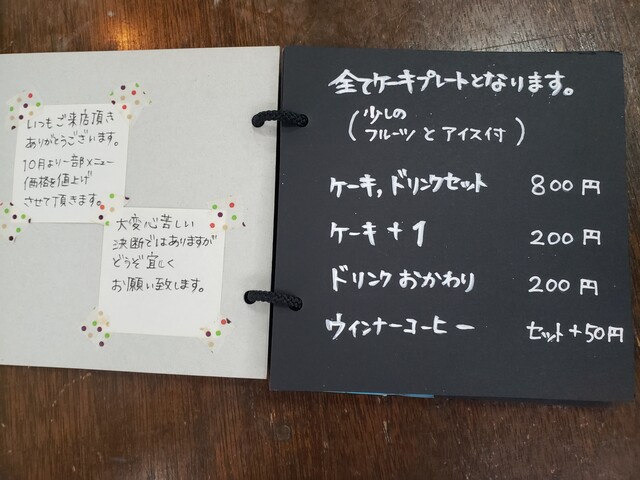 いつもご来店頂き
ありがとうございます。
10月より一部メニュー
価格を値上げ
させて頂きます。
大変心苦しい
決断ではありますが
どうぞ宜しく
お願い致します。
全てケーキプレートとなります。
(少しの
フルーツとアイス付)
ケーキ,ドリンクセット 800円
ケーキ+1 200円
ドリンクおかわり 200円
ウィンナーコーヒー セット+50円